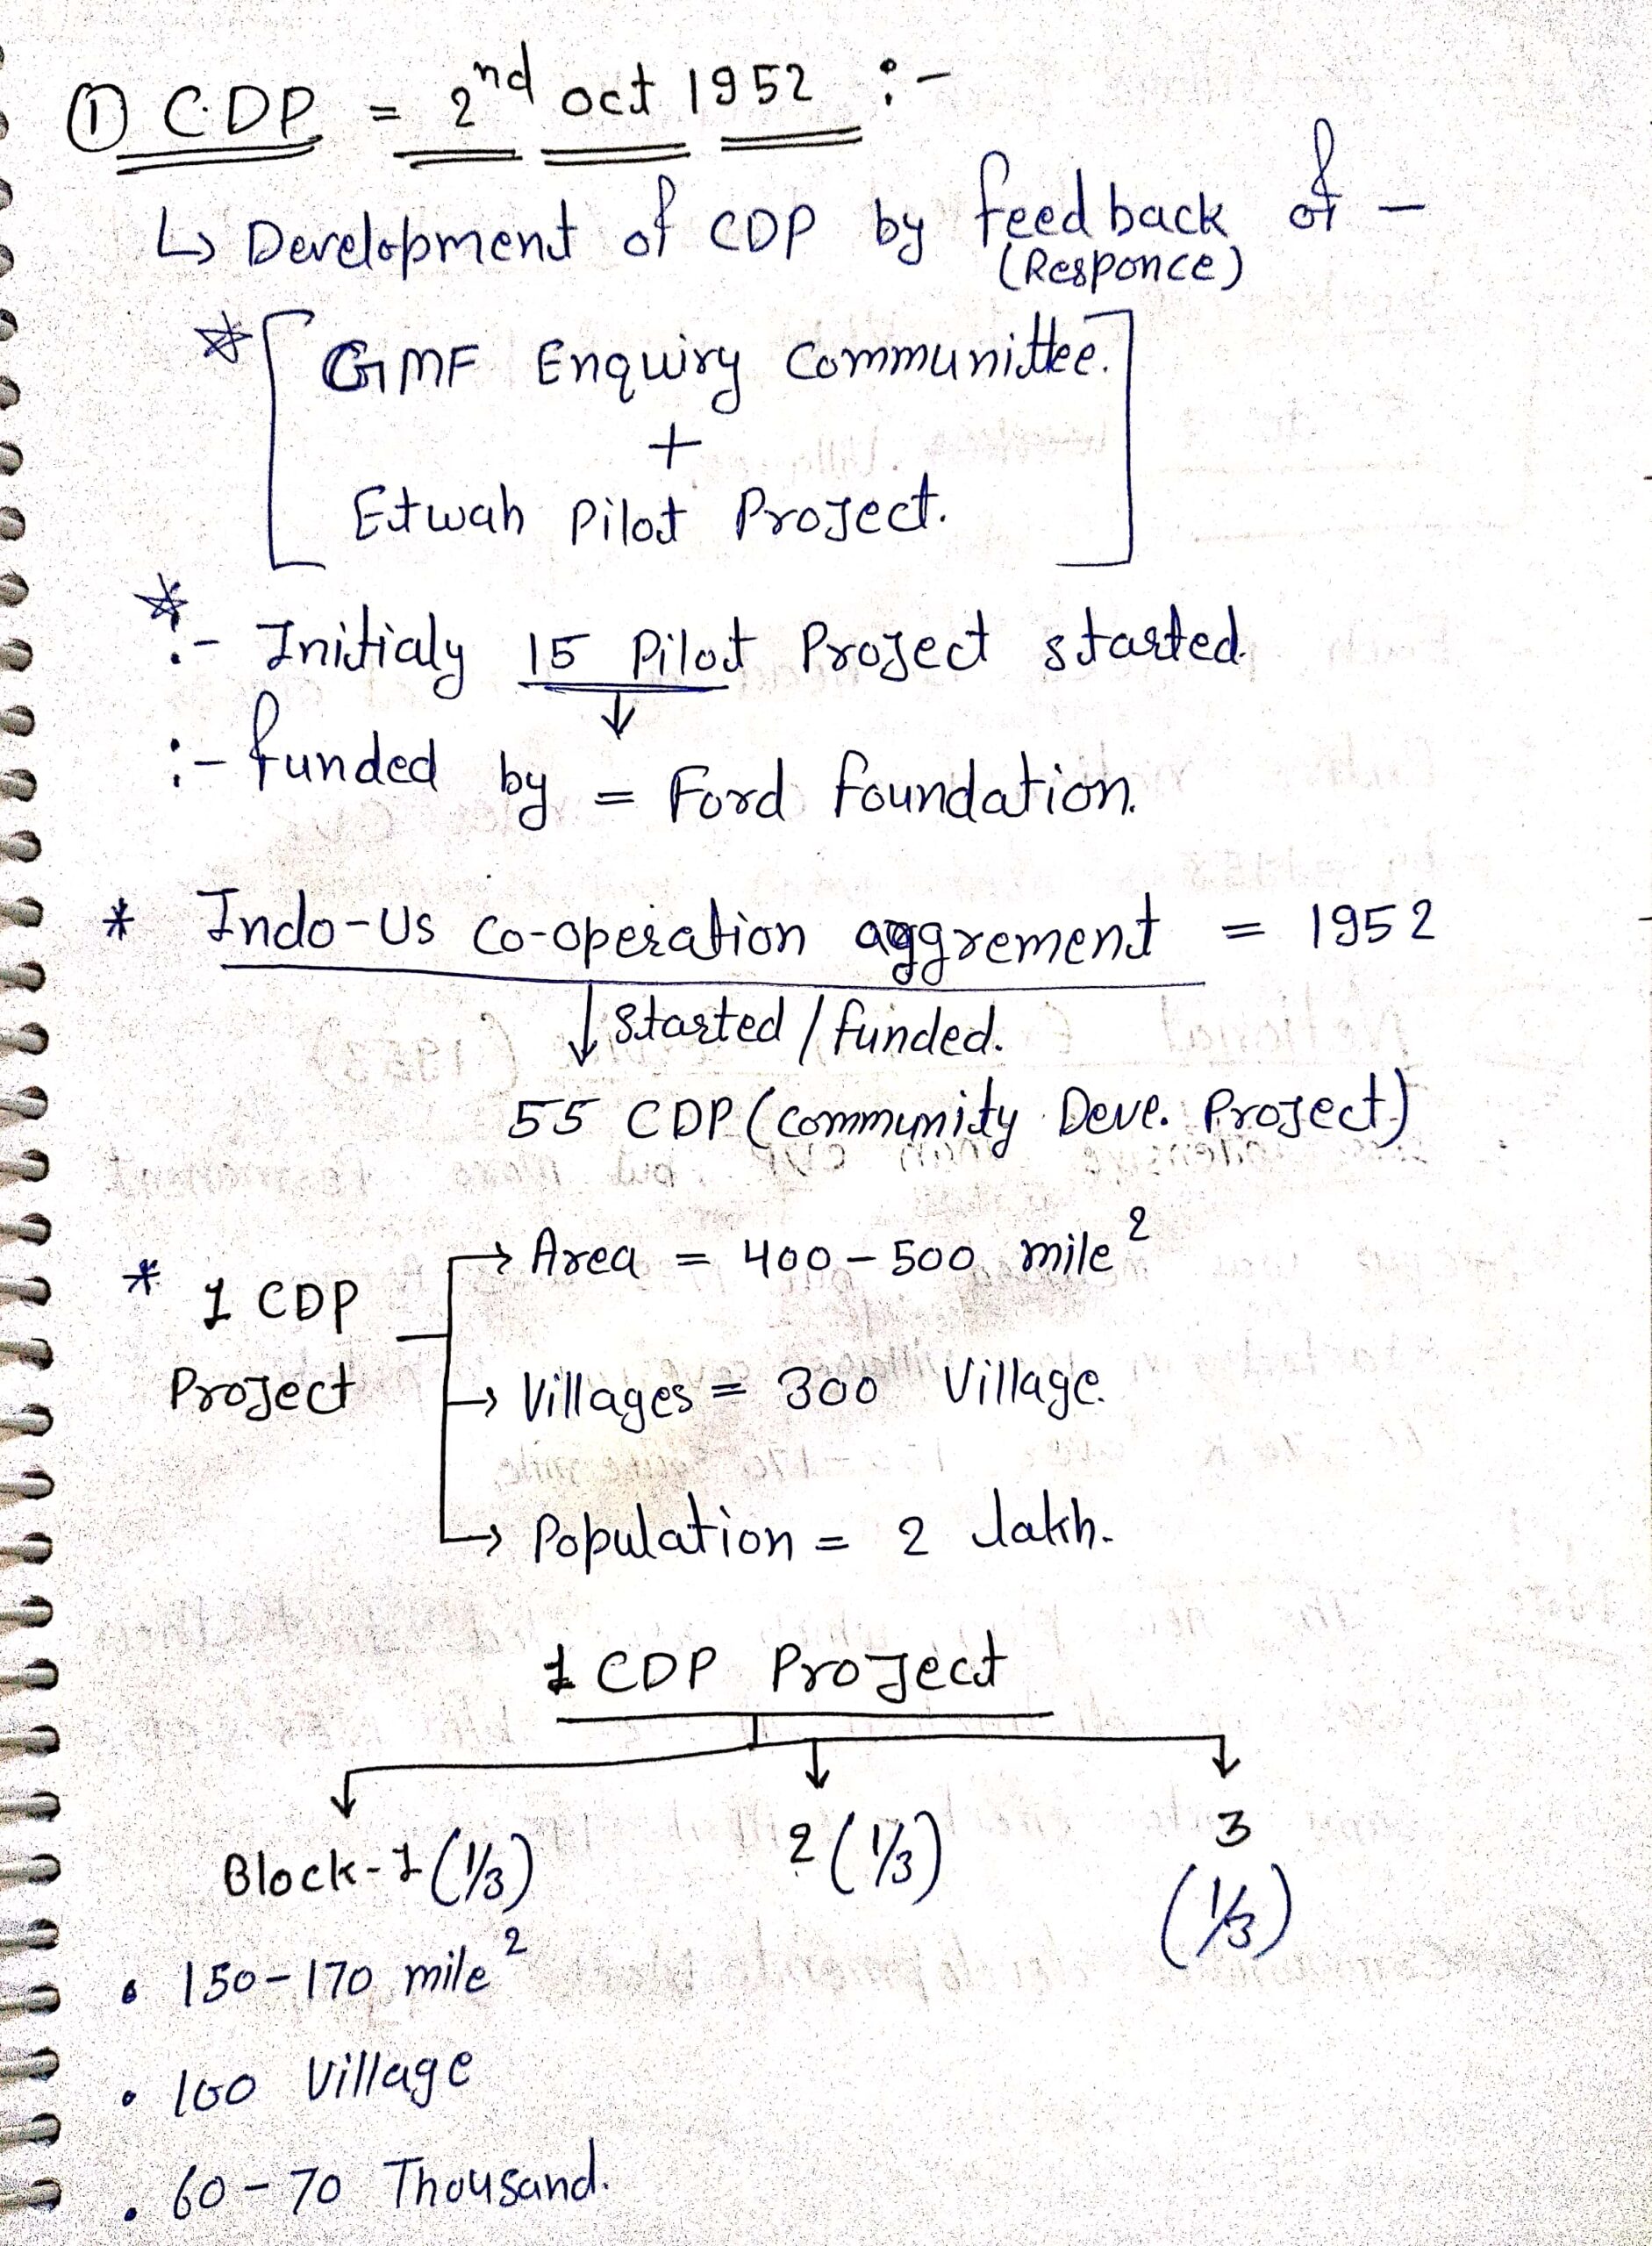 ① C.D.P = 2nd oct 1952 :-
↳ Development of CDP by feedback of -
(Responce)
GMF Enquiry Communittee.
+
Etwah Pilot Project.
:- Initialy 15 Pilot Project started.
:- funded by = Ford foundation.
* Indo-Us Co-operation aggrement = 1952
↓ Started / funded.
55 CDP (Community Deve. Project)
* 1 CDP Project
→ Area = 400-500 mile²
→ Villages = 300 Village.
→ Population = 2 lakh.
1 CDP Project
Block-1 (1/3) 2 (1/3) 3 (1/3)
• 150-170 mile²
• 100 Village
• 60-70 Thousand.